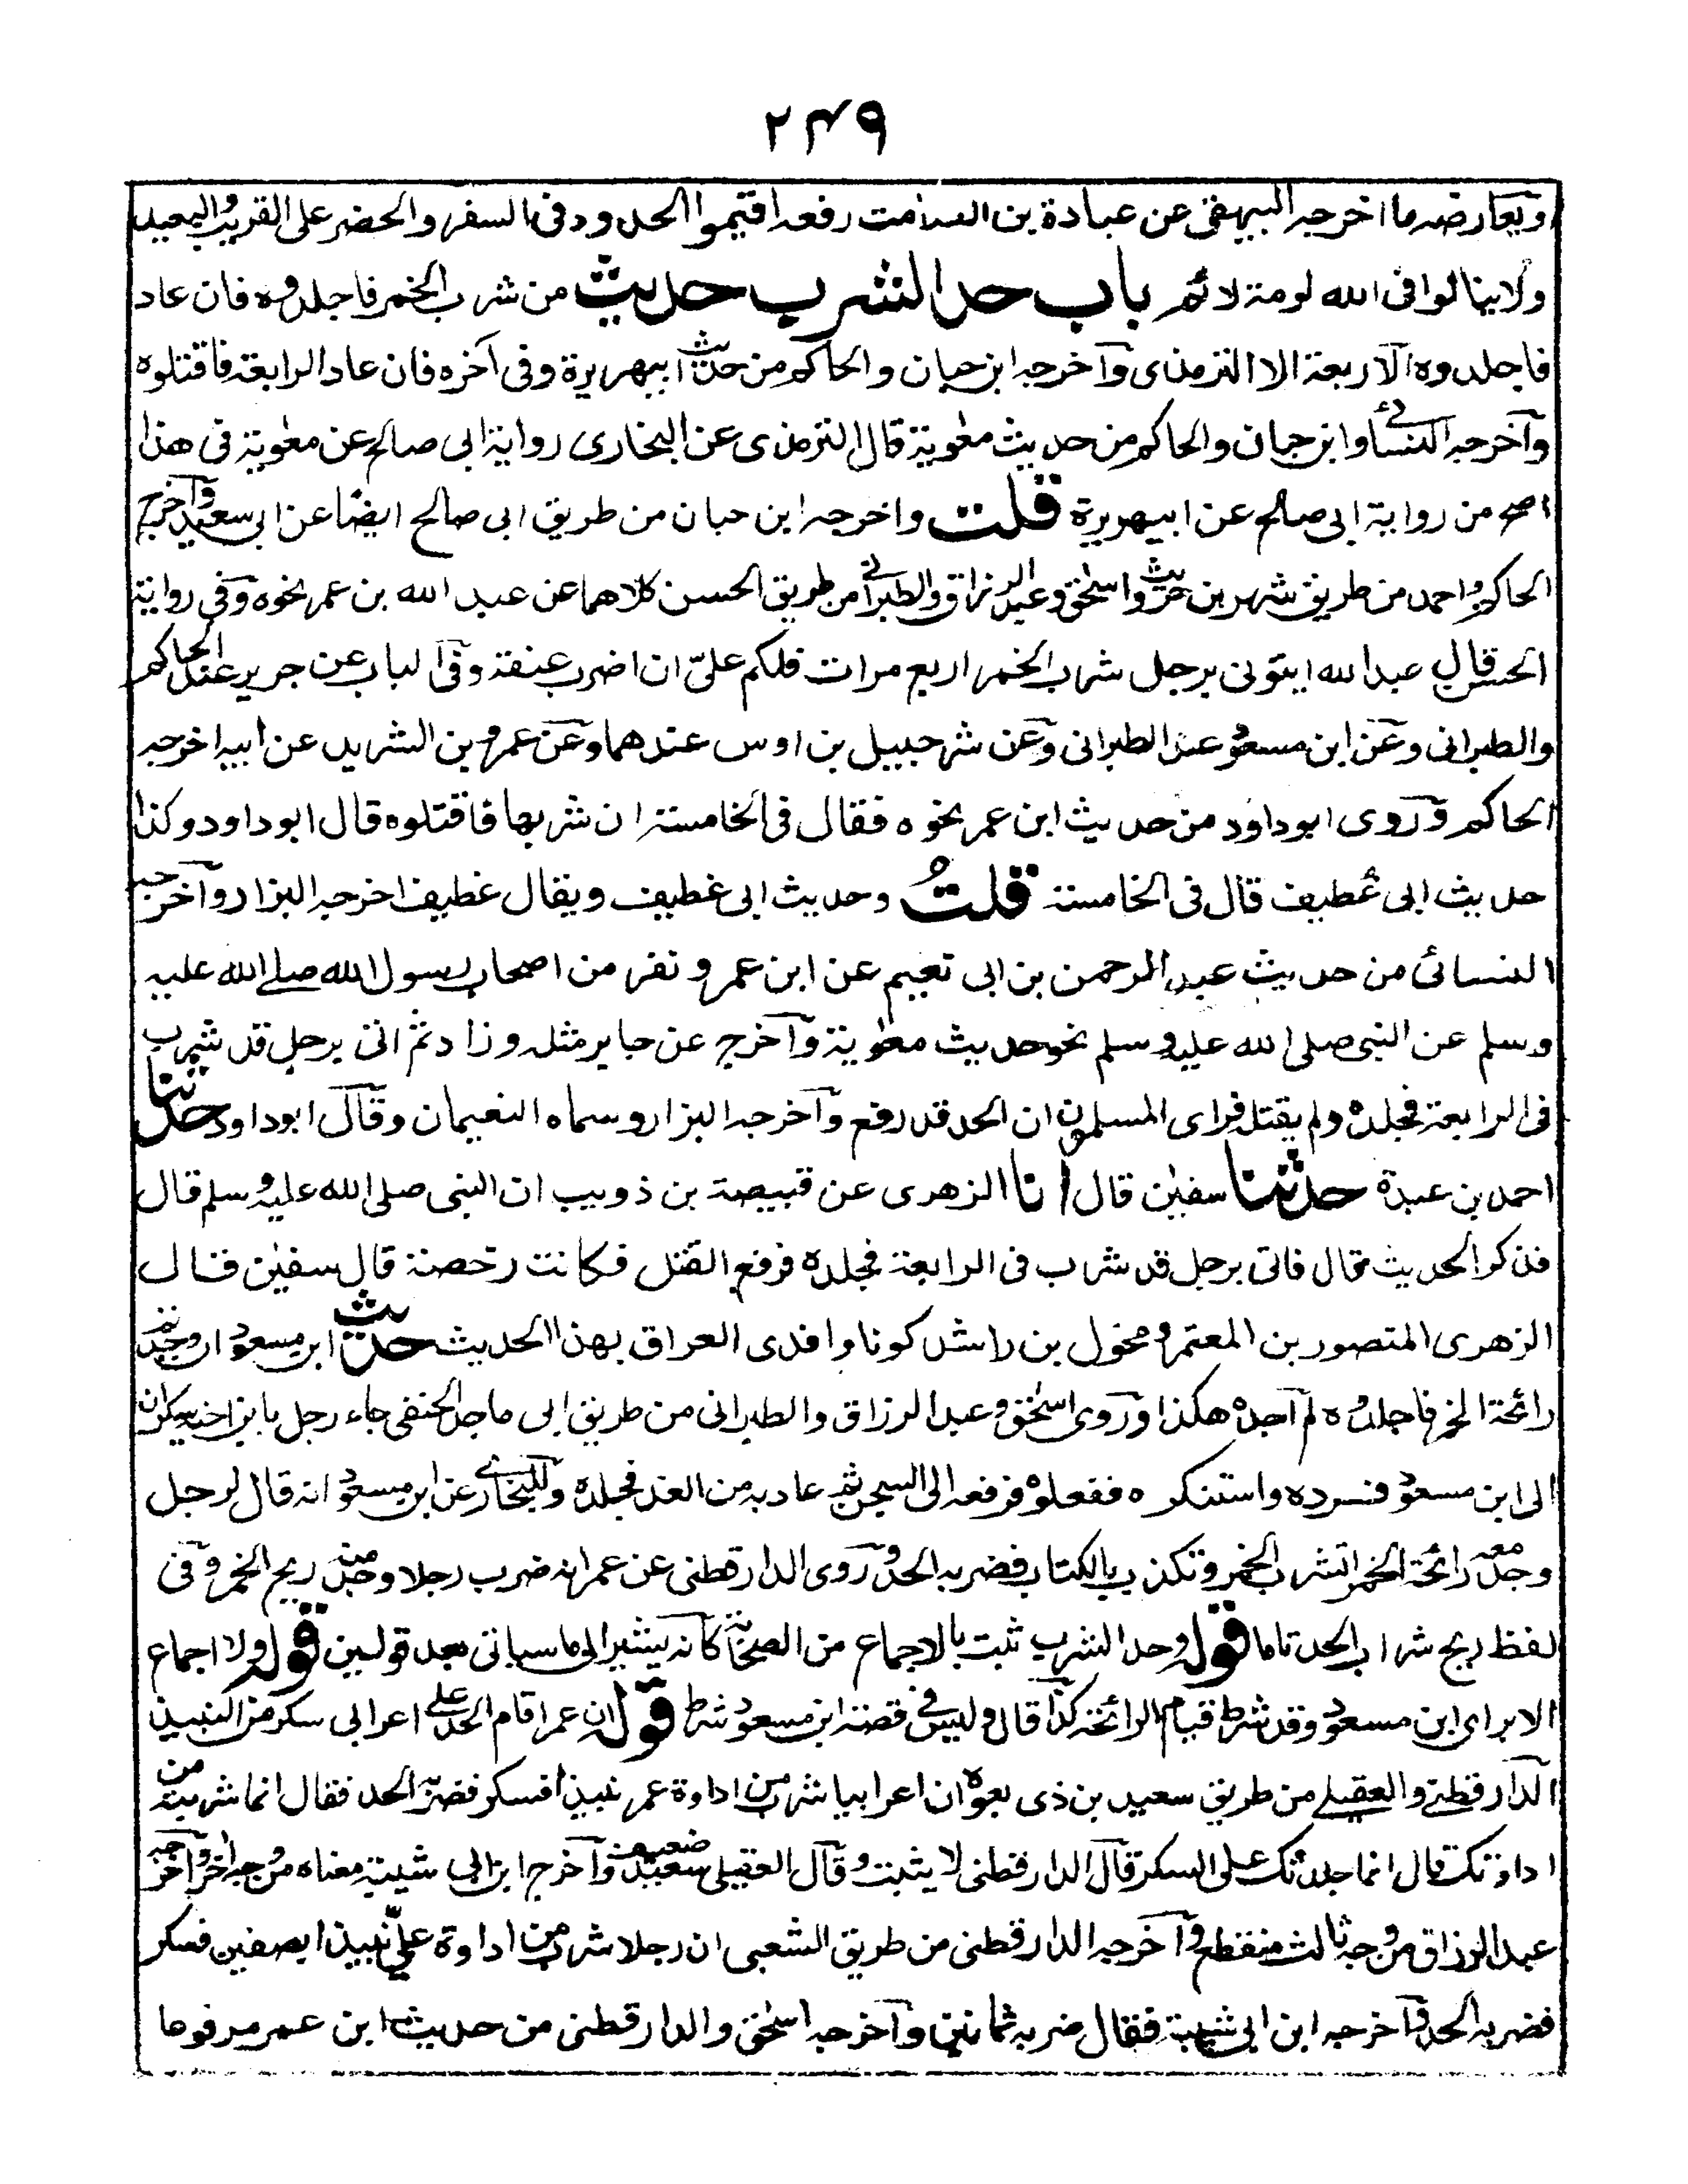 ٢٤٩
ويعارضه ما اخرجه البيهقى عن عبادة بن الصامت رفعه اقيموا الحدود فى السفر والحضر على القريب والبعيد
ولا يبالوا فى الله لومة لائم باب حد الشرب حديث من شرب الخمر فاجلدوه فان عاد
فاجلدوه الاربعة الا الترمذى وآخرجه ابن حبان والحاكم من حديث ابيهريرة وفى آخره فان عاد الرابعة فاقتلوه
وآخرجه النسائى وابن حبان والحاكم من حديث معٰوية قال الترمذى عن البخارى رواية ابى صالح عن معٰوية فى هذا
اصح من رواية ابى صالح عن ابيهريرة قلت واخرجه ابن حبان من طريق ابى صالح ايضًا عن ابى سعيد وآخرج
الحاكم واحمد من طريق شهر بن حوشب واسحٰق وعبد الرزاق والطبرانى من طريق الحسن كلاهما عن عبد الله بن عمر نحوه وفى رواية
الحسن قال عبد الله ايتونى برجل شرب الخمر اربع مرات فلكم علىّ ان اضرب عنقة وفى الباب عن جرير عند الحاكم
والطبرانى وعن ابن مسعود عند الطبرانى وعن شرحبيل بن اوس عندهما وعن عمرو بن الشريد عن ابيه اخرجه
الحاكم وروى ابو داود من حديث ابن عمر نحوه فقال فى الخامسة ان شربها فاقتلوه قال ابو داود وكذا
حديث ابى غطيف قال فى الخامسة قلتُ وحديث ابى غطيف ويقال غطيف اخرجه البزار وآخرجه
النسائى من حديث عبد الرحمن بن ابى نعيم عن ابن عمر ونفر من اصحاب رسول الله صلے الله عليه
وسلم عن النبى صلى الله عليه وسلم نحو حديث معٰوية وآخرج عن جابر مثله وزاد ثم اتى برجل قد شرب
فى الرابعة فجلده ولم يقتل فراى المسلمون ان الحد قد رفع وآخرجه البزار وسماه النعيمان وقال ابو داود حدثنا
احمد بن عبدة حدثنا سفيٰن قال انا الزهرى عن قبيصة بن ذويب ان النبى صلى الله عليه وسلم قال
فذكر الحديث قال فاتى برجل قد شرب فى الرابعة فجلده فرفع القتل فكانت رخصة قال سفيٰن فقال
الزهرى المنصور بن المعتمر ومخول بن راشد كونا وافدى العراق بهذا الحديث حديث ابن مسعود ان وجدتم
رائحة الخمر فاجلدوه لم آجده هكذا وروى اسحٰق وعبد الرزاق والطبرانى من طريق ابى ماجد الحنفى جاء رجل بابن اخيه سكران
الى ابن مسعود فسرده واستنكره ففعلوه فرفعه الى السجن ثم عاد به من الغد فجلده وللبخارى عن ابن مسعود انه قال لرجل
وجد معه رائحة الخمر اتشرب الخمر وتكذب بالكتاب فضربه الحد وروى الدارقطنى عن عمر انه ضرب رجلا وجد منه ريح الخمر وفى
لفظ ريح شراب الحد تاما قوله وحد الشرب ثبت بالاجماع من الصحابة كانه يشير الى ما سياتى بعد قولين قوله ولا اجماع
الا براى ابن مسعود وقد شرط قيام الرائحة كذا قال وليس فى قصة ابن مسعود شرط قوله ان عمر اقام الحد على اعرابى سكر من النبيذ
الدارقطنے والعقيلے من طريق سعيد بن ذى لعوة ان اعرابيا شرب من اداوة عمر نبيذا فسكر فضربه الحد فقال انما شربته من
اداوتك قال انما جلدتك على السكر قال الدارقطنى لا يثبت وقال العقيلى سعيد ضعيف وآخرج ابن ابى شيبة معناه من وجه اخر وآخرجه
عبد الرزاق من وجه ثالث منقطع وآخرجه الدارقطنى من طريق الشعبى ان رجلا شرب من اداوة علىّ نبيذا بصفين فسكر
فضربه الحد وآخرجه ابن ابى شيبة فقال ضربه ثمانين وآخرجه اسحٰق والدارقطنى من حديث ابن عمر مرفوعا